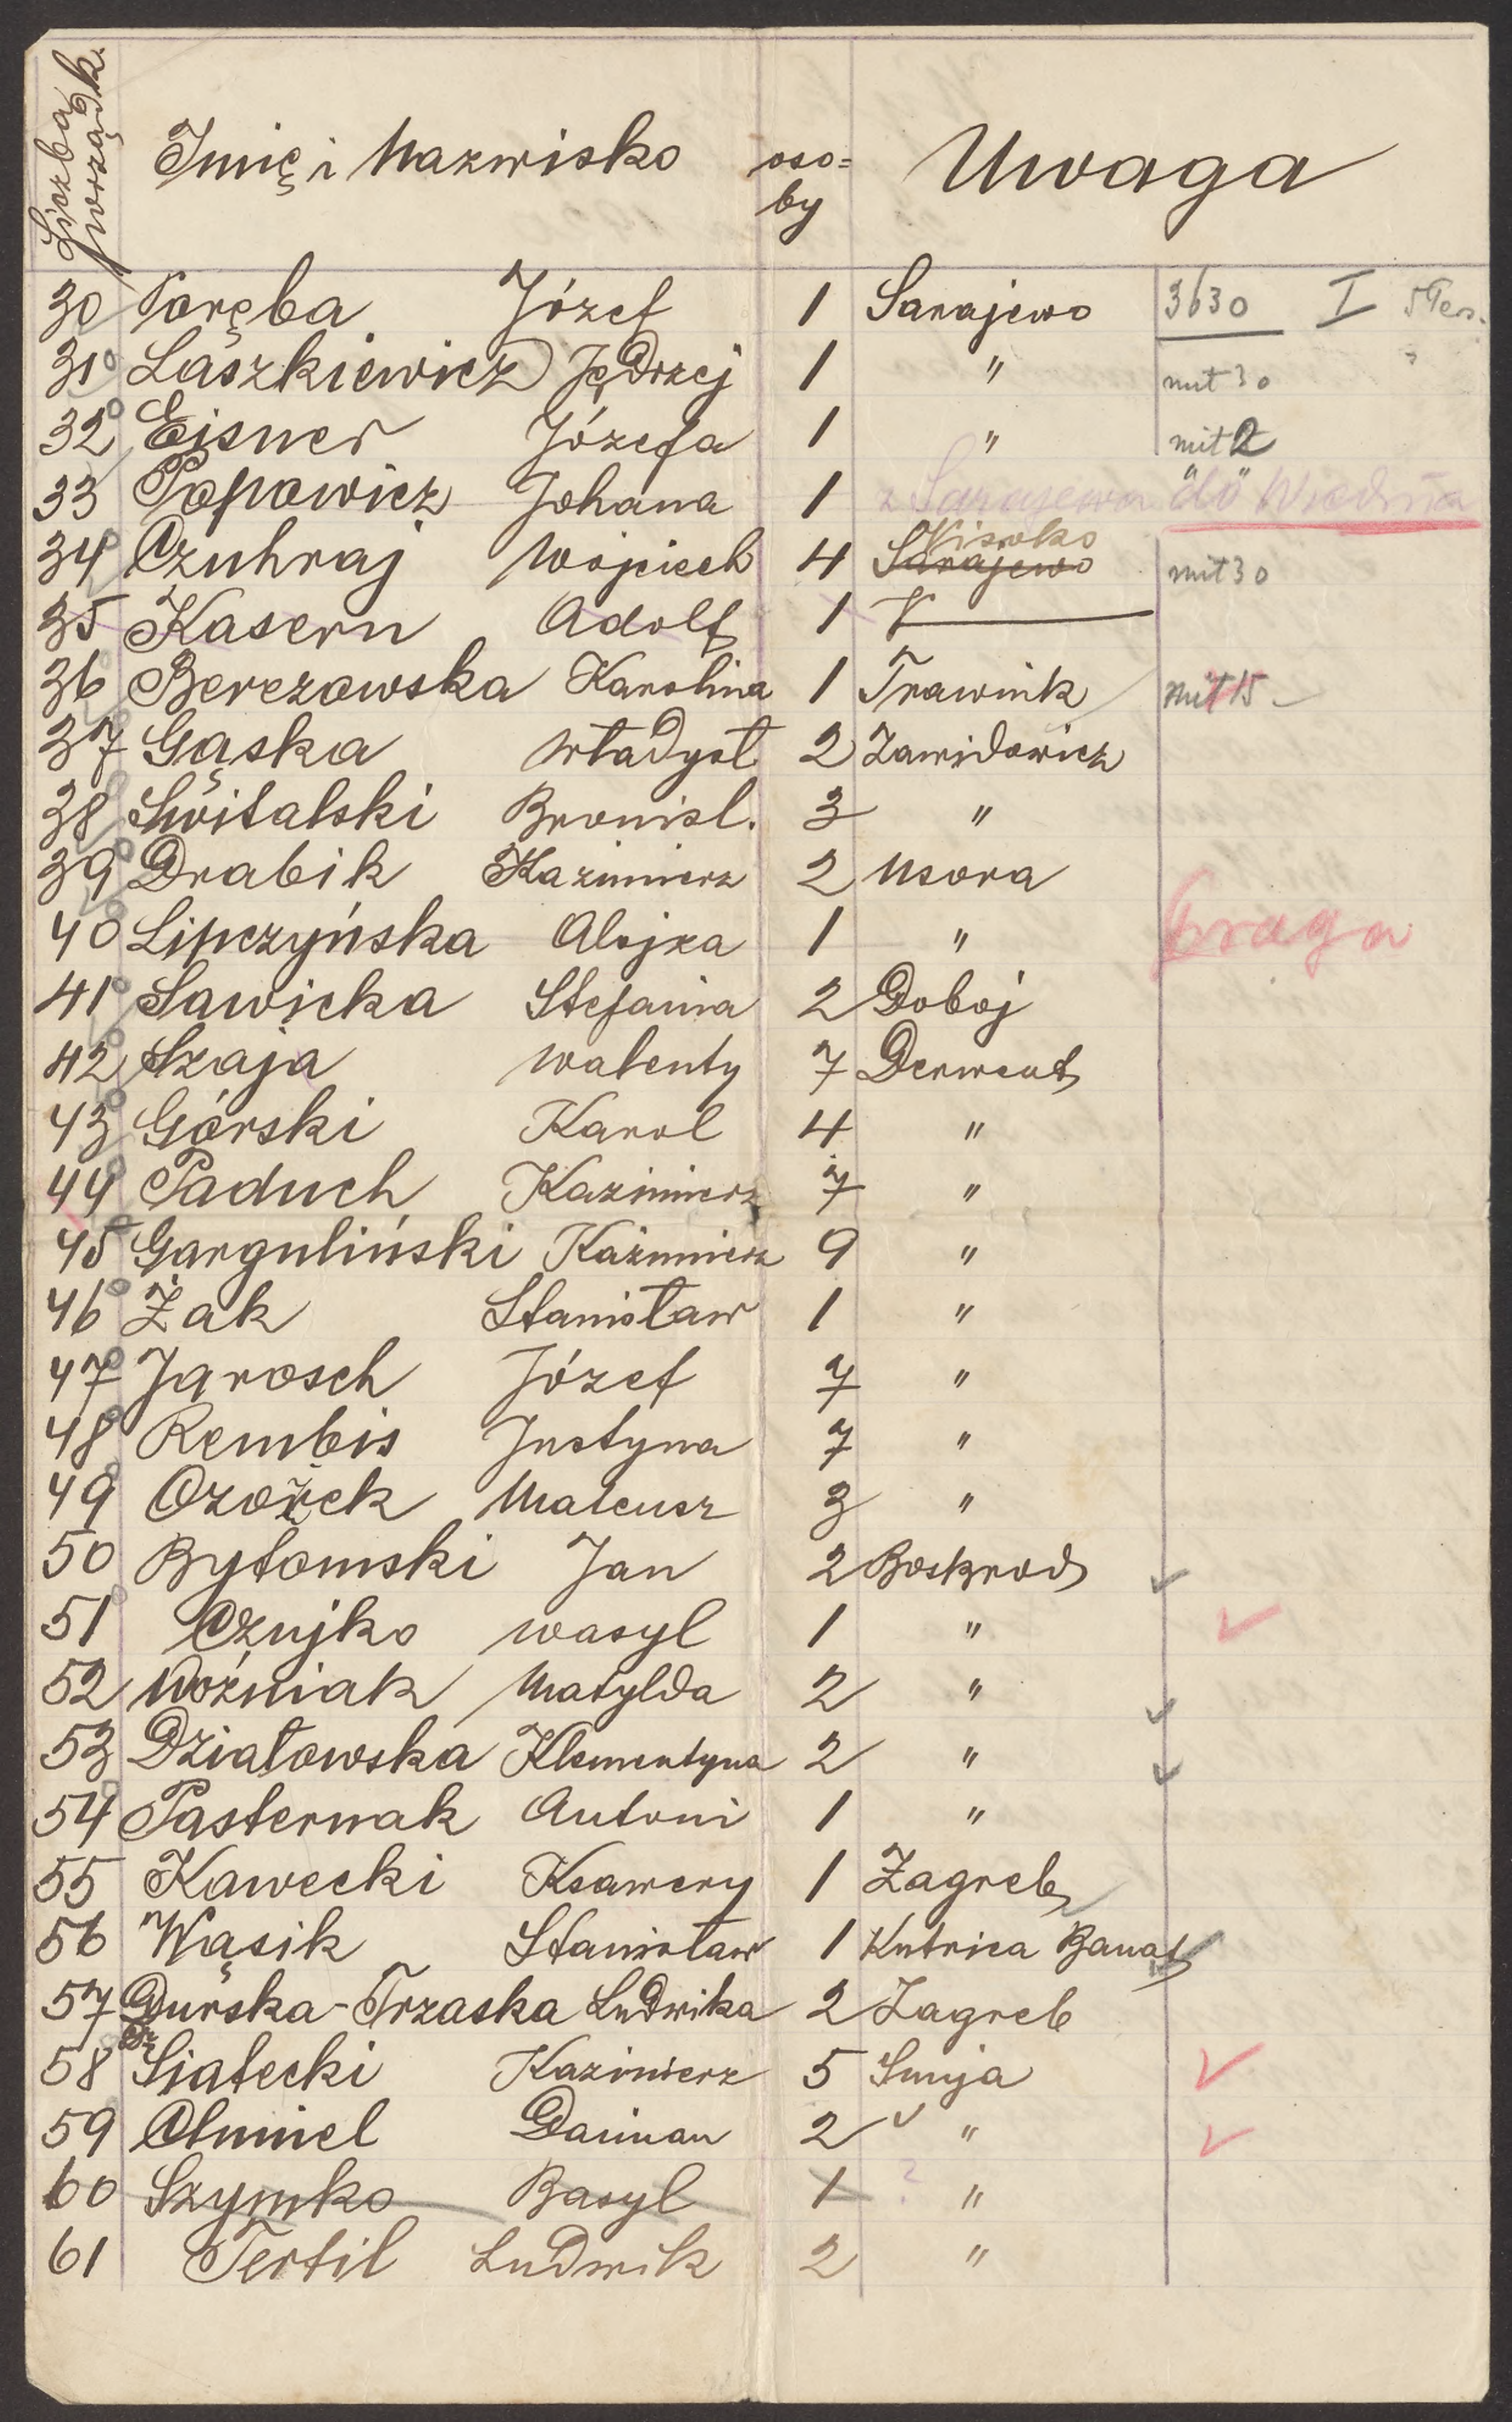 Liczba porządk.
Imię i Nazwisko oso=by Uwaga
30 Poręba Józef 1 Sarajewo 3630 I
31 Laszkiewicz Jędrzej 1 " mit 30
32 Eisner Józefa 1 " mit 2
33 Popowicz Johana 1 z Sarajewa do Wiednia
34 Czuhraj Wojciech 4 Sarajewo Visoko mit 30
35 Kasern Adolf 1 "
36 Berezowska Karolina 1 Trawnik mit 15
37 Gąska Władysł. 2 Zawidowicz
38 Świtalski Bronisl. 3 "
39 Drabik Kazimierz 2 Usora
40 Lipczyńska Alojza 1 " Praga
41 Sawicka Stefania 2 Doboj
42 Szaja Walenty 7 Derwent
43 Górski Karol 4 "
44 Paduch Kazimierz 7 "
45 Garguliński Kazimierz 9 "
46 Żak Stanisław 1 "
47 Jarosch Józef 7 "
48 Rembis Justyna 7 "
49 Ozożek Mateusz 3 "
50 Bytomski Jan 2 Boskrod
51 Czujko Wasyl 1 "
52 Woźniak Matylda 2 "
53 Działowska Klementyna 2 "
54 Pasternak Antoni 1 "
55 Kawecki Ksawery 1 Zagreb
56 Wąsik Stanisław 1 Kutrica Banat
57 Durska-Trzaska Ludwika 2 Zagreb
58 Dr Siatecki Kazimierz 5 Sunja
59 Chmiel Damian 2 "
60 Szymko Basyl 1 ? "
61 Tertil Ludwik 2 "